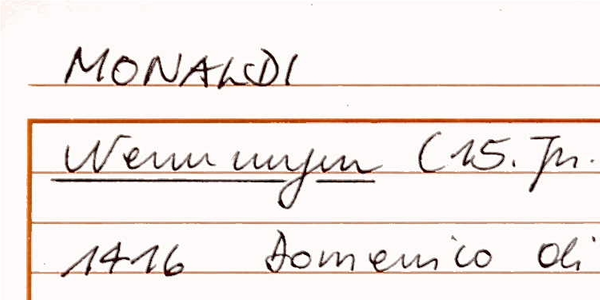 MONALDI
Nennungen (15. Jh.
1416 Domenico di